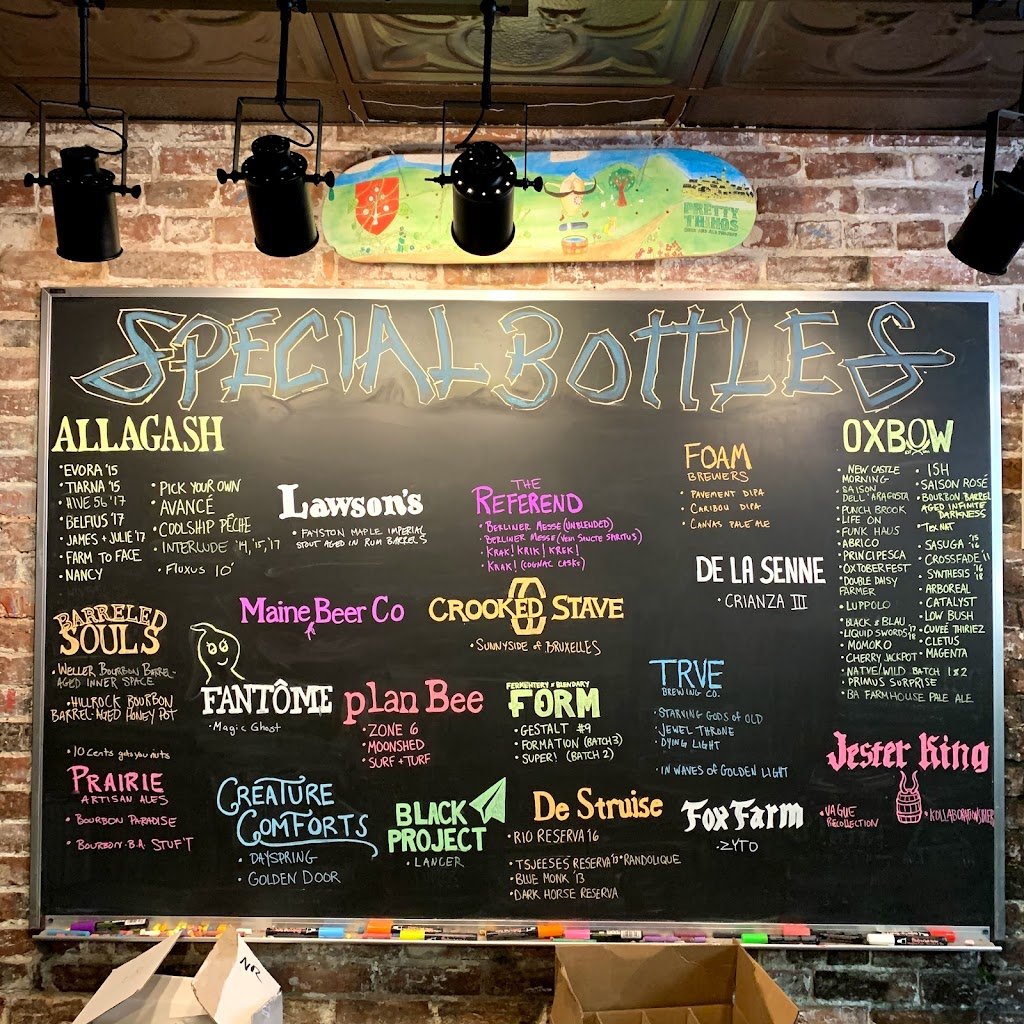 PRETTY
THINGS
SPECIAL BOTTLES
ALLAGASH
• EVORA '15
• TIARNA '15
• HIVE 56 '17
• BELFIUS '17
• JAMES + JULIE '17
• FARM TO FACE
• NANCY
• PICK YOUR OWN
• AVANCÉ
• COOLSHIP PÊCHE
• INTERLUDE '4, '15, '17
• FLUXUS 10'
LAWSON'S
• FAYSTON MAPLE IMPERIAL
STOUT AGED IN RUM BARRELS
THE
REFEREND
• BERLINER MESSE (UNBLENDED)
• BERLINER MESSE (VENI SANCTE SPIRITUS)
• KRAK! KRIK! KREK!
• KRAK! (COGNAC CASKS)
FOAM
BREWERS
• PAVEMENT DIPA
• CARIBOU DIPA
• CANVAS PALE ALE
OXBOW
• NEW CASTLE
MORNING
• SAISON
DELL' ARAGOSTA
• PUNCH BROOK
• LIFE ON
• FUNK HAUS
• ABRICO
• PRINCIPESCA
• OXTOBERFEST
• DOUBLE DAISY
FARMER
• LUPPOLO
• BLACK & BLAU
• LIQUID SWORDS '17 '18
• MOMOKO
• CHERRY JACKPOT
• NATIVE/WILD BATCH 1 & 2
• PRIMUS SURPRISE
• BA FARMHOUSE PALE ALE
• ISH
• SAISON ROSÉ
• BOURBON BARREL
AGED INFINITE
DARKNESS
• SASUGA '15 '16
• CROSSFADE
• SYNTHESIS '16 '18
• ARBOREAL
• CATALYST
• LOW BUSH
• CUVEÉ THIRIEZ
• CLETUS
• MAGENTA
DE LA SENNE
• CRIANZA III
BARRELED
SOULS
• WELLER BOURBON BARREL-
AGED INNER SPACE
• HILLROCK BOURBON
BARREL-AGED HONEY POT
• 10 Cents gets you nuts
MAINE BEER CO
CROOKED STAVE
• SUNNYSIDE OF BRUXELLES
FANTÔME
• Magic Ghost
plan Bee
• ZONE 6
• MOONSHED
• SURF + TURF
FERMENTERY & BLENDARY
FORM
• GESTALT #9
• FORMATION (BATCH 3)
• SUPER! (BATCH 2)
TRVE
BREWING CO.
• STARVING GODS OF OLD
• JEWEL THRONE
• DYING LIGHT
• IN WAVES OF GOLDEN LIGHT
Jester King
• VAGUE
RECOLLECTION
PRAIRIE
ARTISAN ALES
• BOURBON PARADISE
• BOURBON B.A. STUF'T
CREATURE
COMFORTS
• DAYSPRING
• GOLDEN DOOR
BLACK
PROJECT
• LANCER
De Struise
• RIO RESERVA 16
• TSJEESES RESERVA '13 • RANDOLIQUE
• BLUE MONK '13
• DARK HORSE RESERVA
Fox Farm
• ZYTO
NR